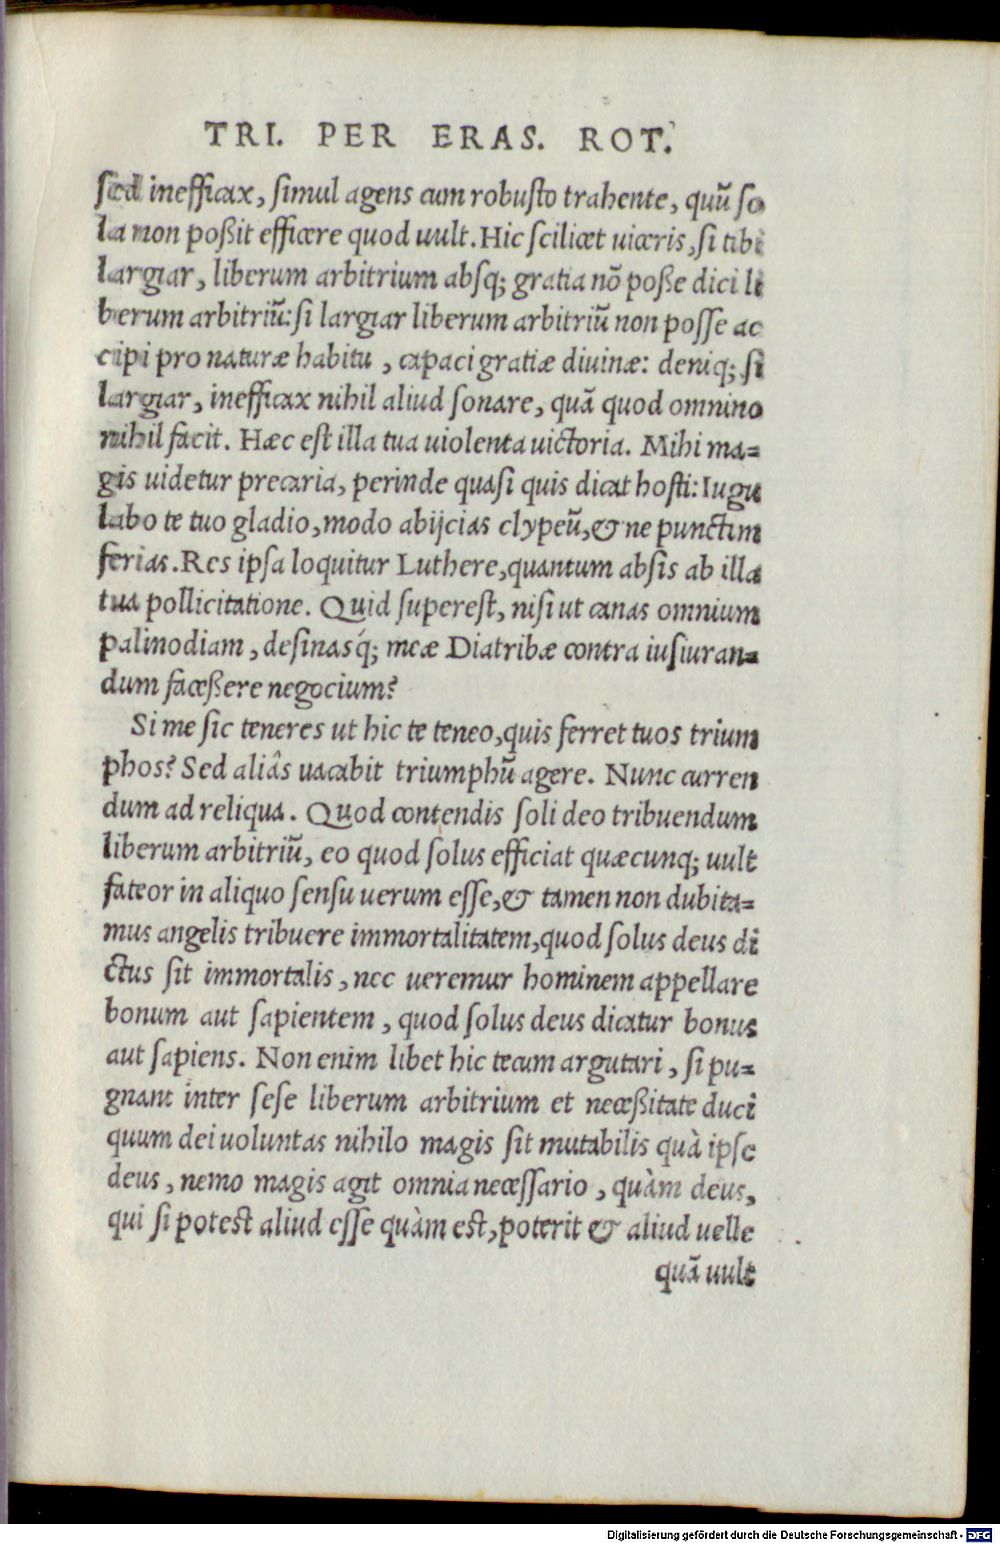 TRI. PER ERAS. ROT.
sed inefficax, simul agens cum robusto trahente, quū so
la non poßit efficere quod uult. Hic scilicet uiceris, si tibi
largiar, liberum arbitrium absq; gratia nō poße dici li
berum arbitriū: si largiar liberum arbitriū non posse ac
cipi pro naturæ habitu, capaci gratiæ diuinæ: deniq; si
largiar, inefficax nihil aliud sonare, quā quod omnino
nihil facit. Hæc est illa tua uiolenta uictoria. Mihi ma=
gis uidetur precaria, perinde quasi quis dicat hosti: Iugu
labo te tuo gladio, modo abijcias clypeū, & ne punctim
ferias. Res ipsa loquitur Luthere, quantum absis ab illa
tua pollicitatione. Quid superest, nisi ut canas omnium
palinodiam, desinasq́; meæ Diatribæ contra iusiuran=
dum faceßere negocium?
Si me sic teneres ut hic te teneo, quis ferret tuos trium
phos? Sed aliâs uacabit triumphū agere. Nunc curren
dum ad reliqua. Quod contendis soli deo tribuendum
liberum arbitriū, eo quod solus efficiat quæcunq; uult
fateor in aliquo sensu uerum esse, & tamen non dubita=
mus angelis tribuere immortalitatem, quod solus deus di
ctus sit immortalis, nec ueremur hominem appellare
bonum aut sapientem, quod solus deus dicatur bonus
aut sapiens. Non enim libet hic tecum argutari, si pu=
gnant inter sese liberum arbitrium et neceßitate duci
quum dei uoluntas nihilo magis sit mutabilis quà ipse
deus, nemo magis agit omnia necessario, quàm deus,
qui si potest aliud esse quàm est, poterit & aliud uelle
quā uult
Digitalisierung gefördert durch die Deutsche Forschungsgemeinschaft - DFG